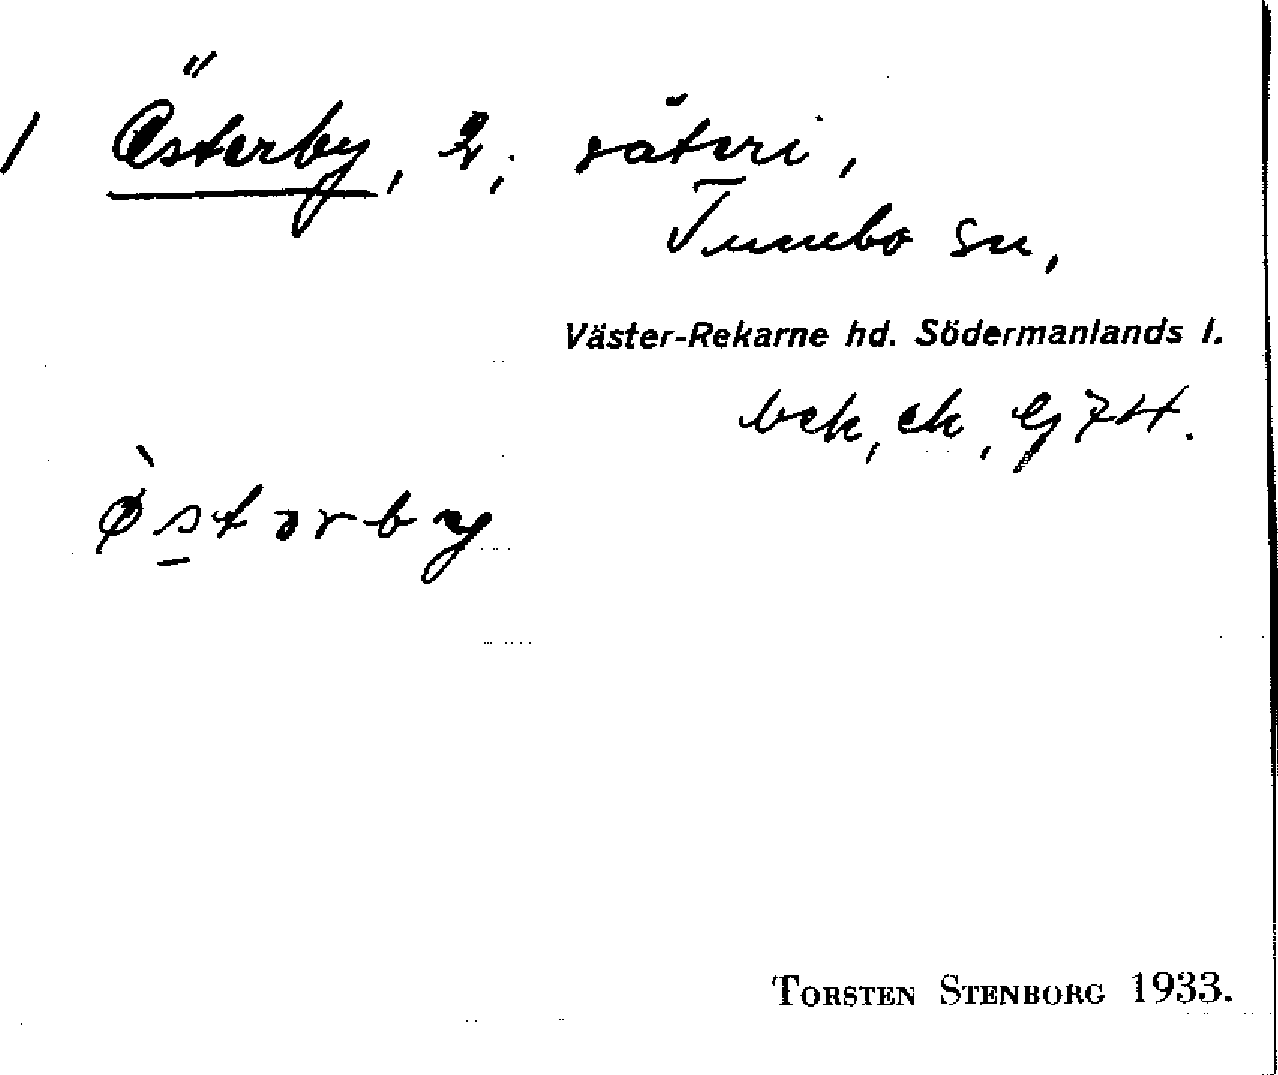 / Österby, 2, säteri,
Tumbo sn,
Väster-Rekarne hd. Södermanlands l.
bek, ek, Gj 74.
Østərby
TORSTEN STENBORG 1933.